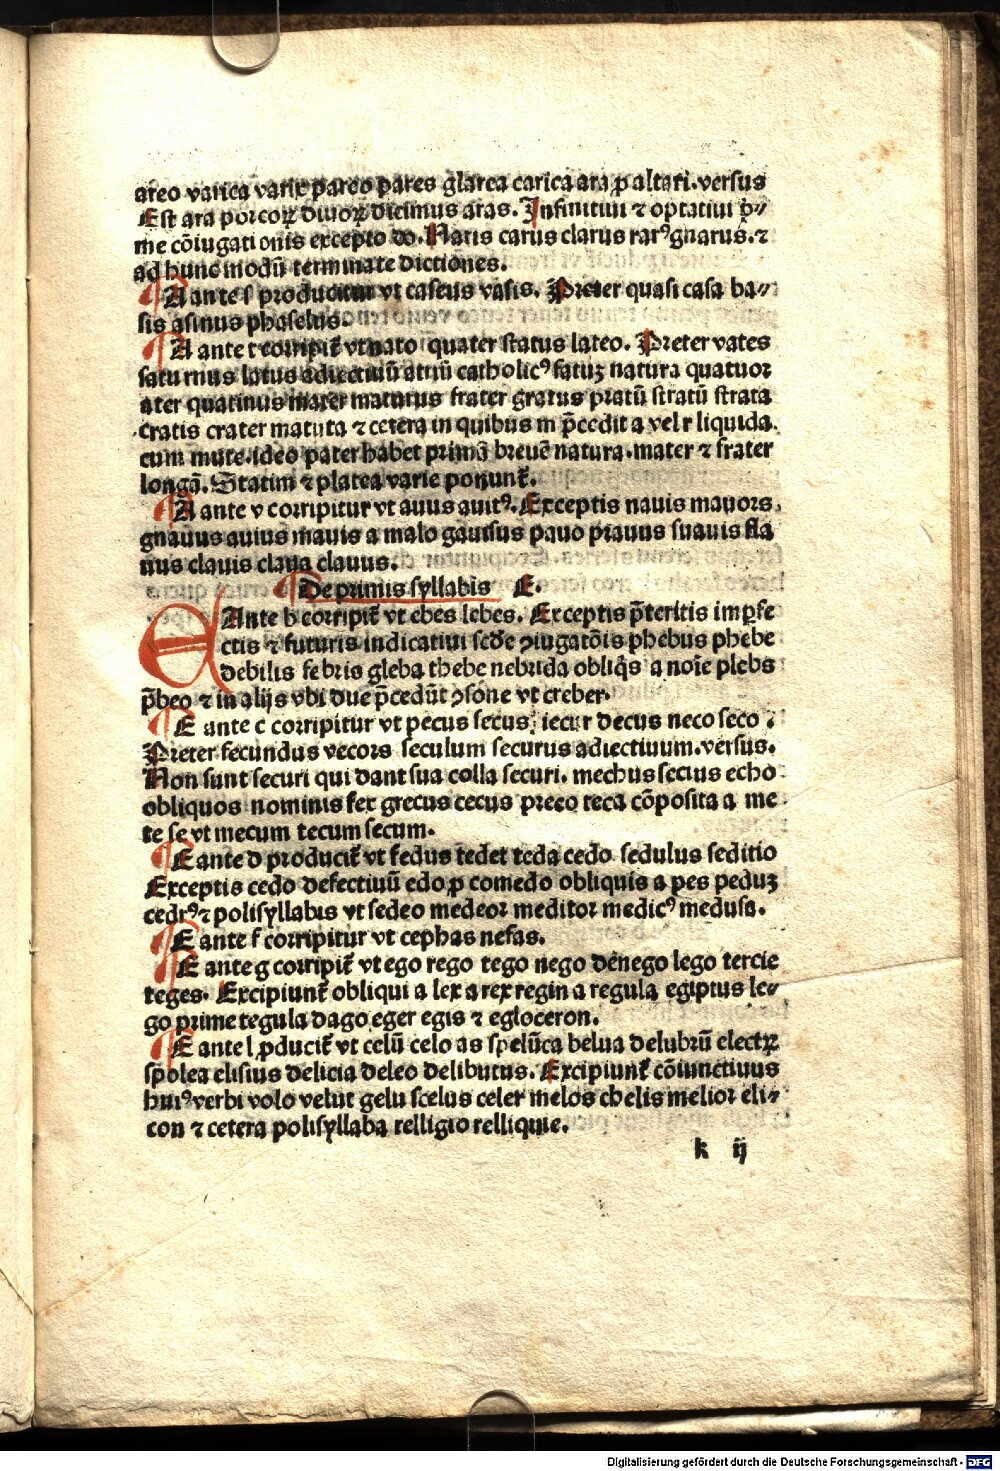 areo varica varix pareo pares glarea carica ara ꝓ altari. versus
Est ara porcoꝝ diuoꝝ dicimus aras. Infinitiui ⁊ optatiui p̄⸗
me cōiugationis excepto do. Naris carus clarus rarꝰ gnarus. ⁊
ad hunc modū terminate dictiones.
A ante s producitur vt caseus vasis. Preter quasi casa ba⸗
sis asinus phaselus.
A ante t corripit̄ vt nato quater status lateo. Preter vates
saturnus latus adiectiuū atriū catholicꝰ fatuꝫ natura quatuor
ater quatinus mater maturus frater gratus pratū stratū strata
cratis crater matuta ⁊ cetera in quibus m p̄cedit a vel r liquida
cum mute. ideo pater habet primā breuē natura. mater ⁊ frater
longā. Statim ⁊ platea varie ponunt̄.
A ante v corripitur vt auus auitꝰ. Exceptis nauis mauors
gnauus auius mauis a malo gauisus pauo prauus suauis fla
uus clauis claua clauus.
De primis syllabis E.
E Ante b corripit̄ vt ebes lebes. Exceptis p̄teritis imꝑfe
ctis ⁊ futuris indicatiui scd̄e ↄiugatōis phebus phebe
debilis febris gleba thebe nebrida obliq̄s a noīe plebs
p̄beo ⁊ in alijs vbi due p̄cedūt ↄsone vt creber.
E ante c corripitur vt pecus secus, iecur decus neco seco :
Preter fecundus vecors seculum securus adiectiuum. versus.
Non sunt securi qui dant sua colla securi. mechus secius echo
obliquos nominis fex grecus cecus preco teca cōposita a me
te se vt mecum tecum secum.
E ante d producit̄ vt fedus tedet teda cedo sedulus seditio
Exceptis cedo defectiuū edo ꝓ comedo obliquis a pes peduꝫ
cedrꝰ ⁊ polisyllabis vt sedeo medeor meditor medicꝰ medusa.
E ante f corripitur vt cephas nefas.
E ante g corripit̄ vt ego rego tego nego dēnego lego tercie
teges. Excipiunt̄ obliqui a lex a rex regina regula egiptus le⸗
go prime tegula dago eger egis ⁊ egloceron.
E ante l ꝓducit̄ vt celū celo as spelūca belua delubrū electꝝ
sp̄olea elisius delicia deleo delibutus. Excipiunt̄ cōiunctiuus
huiꝰ verbi volo velut gelu scelus celer melos chelis melior eli⸗
con ⁊ cetera polisyllaba relligio relliquie.
k ij
Digitalisierung gefördert durch die Deutsche Forschungsgemeinschaft - DFG